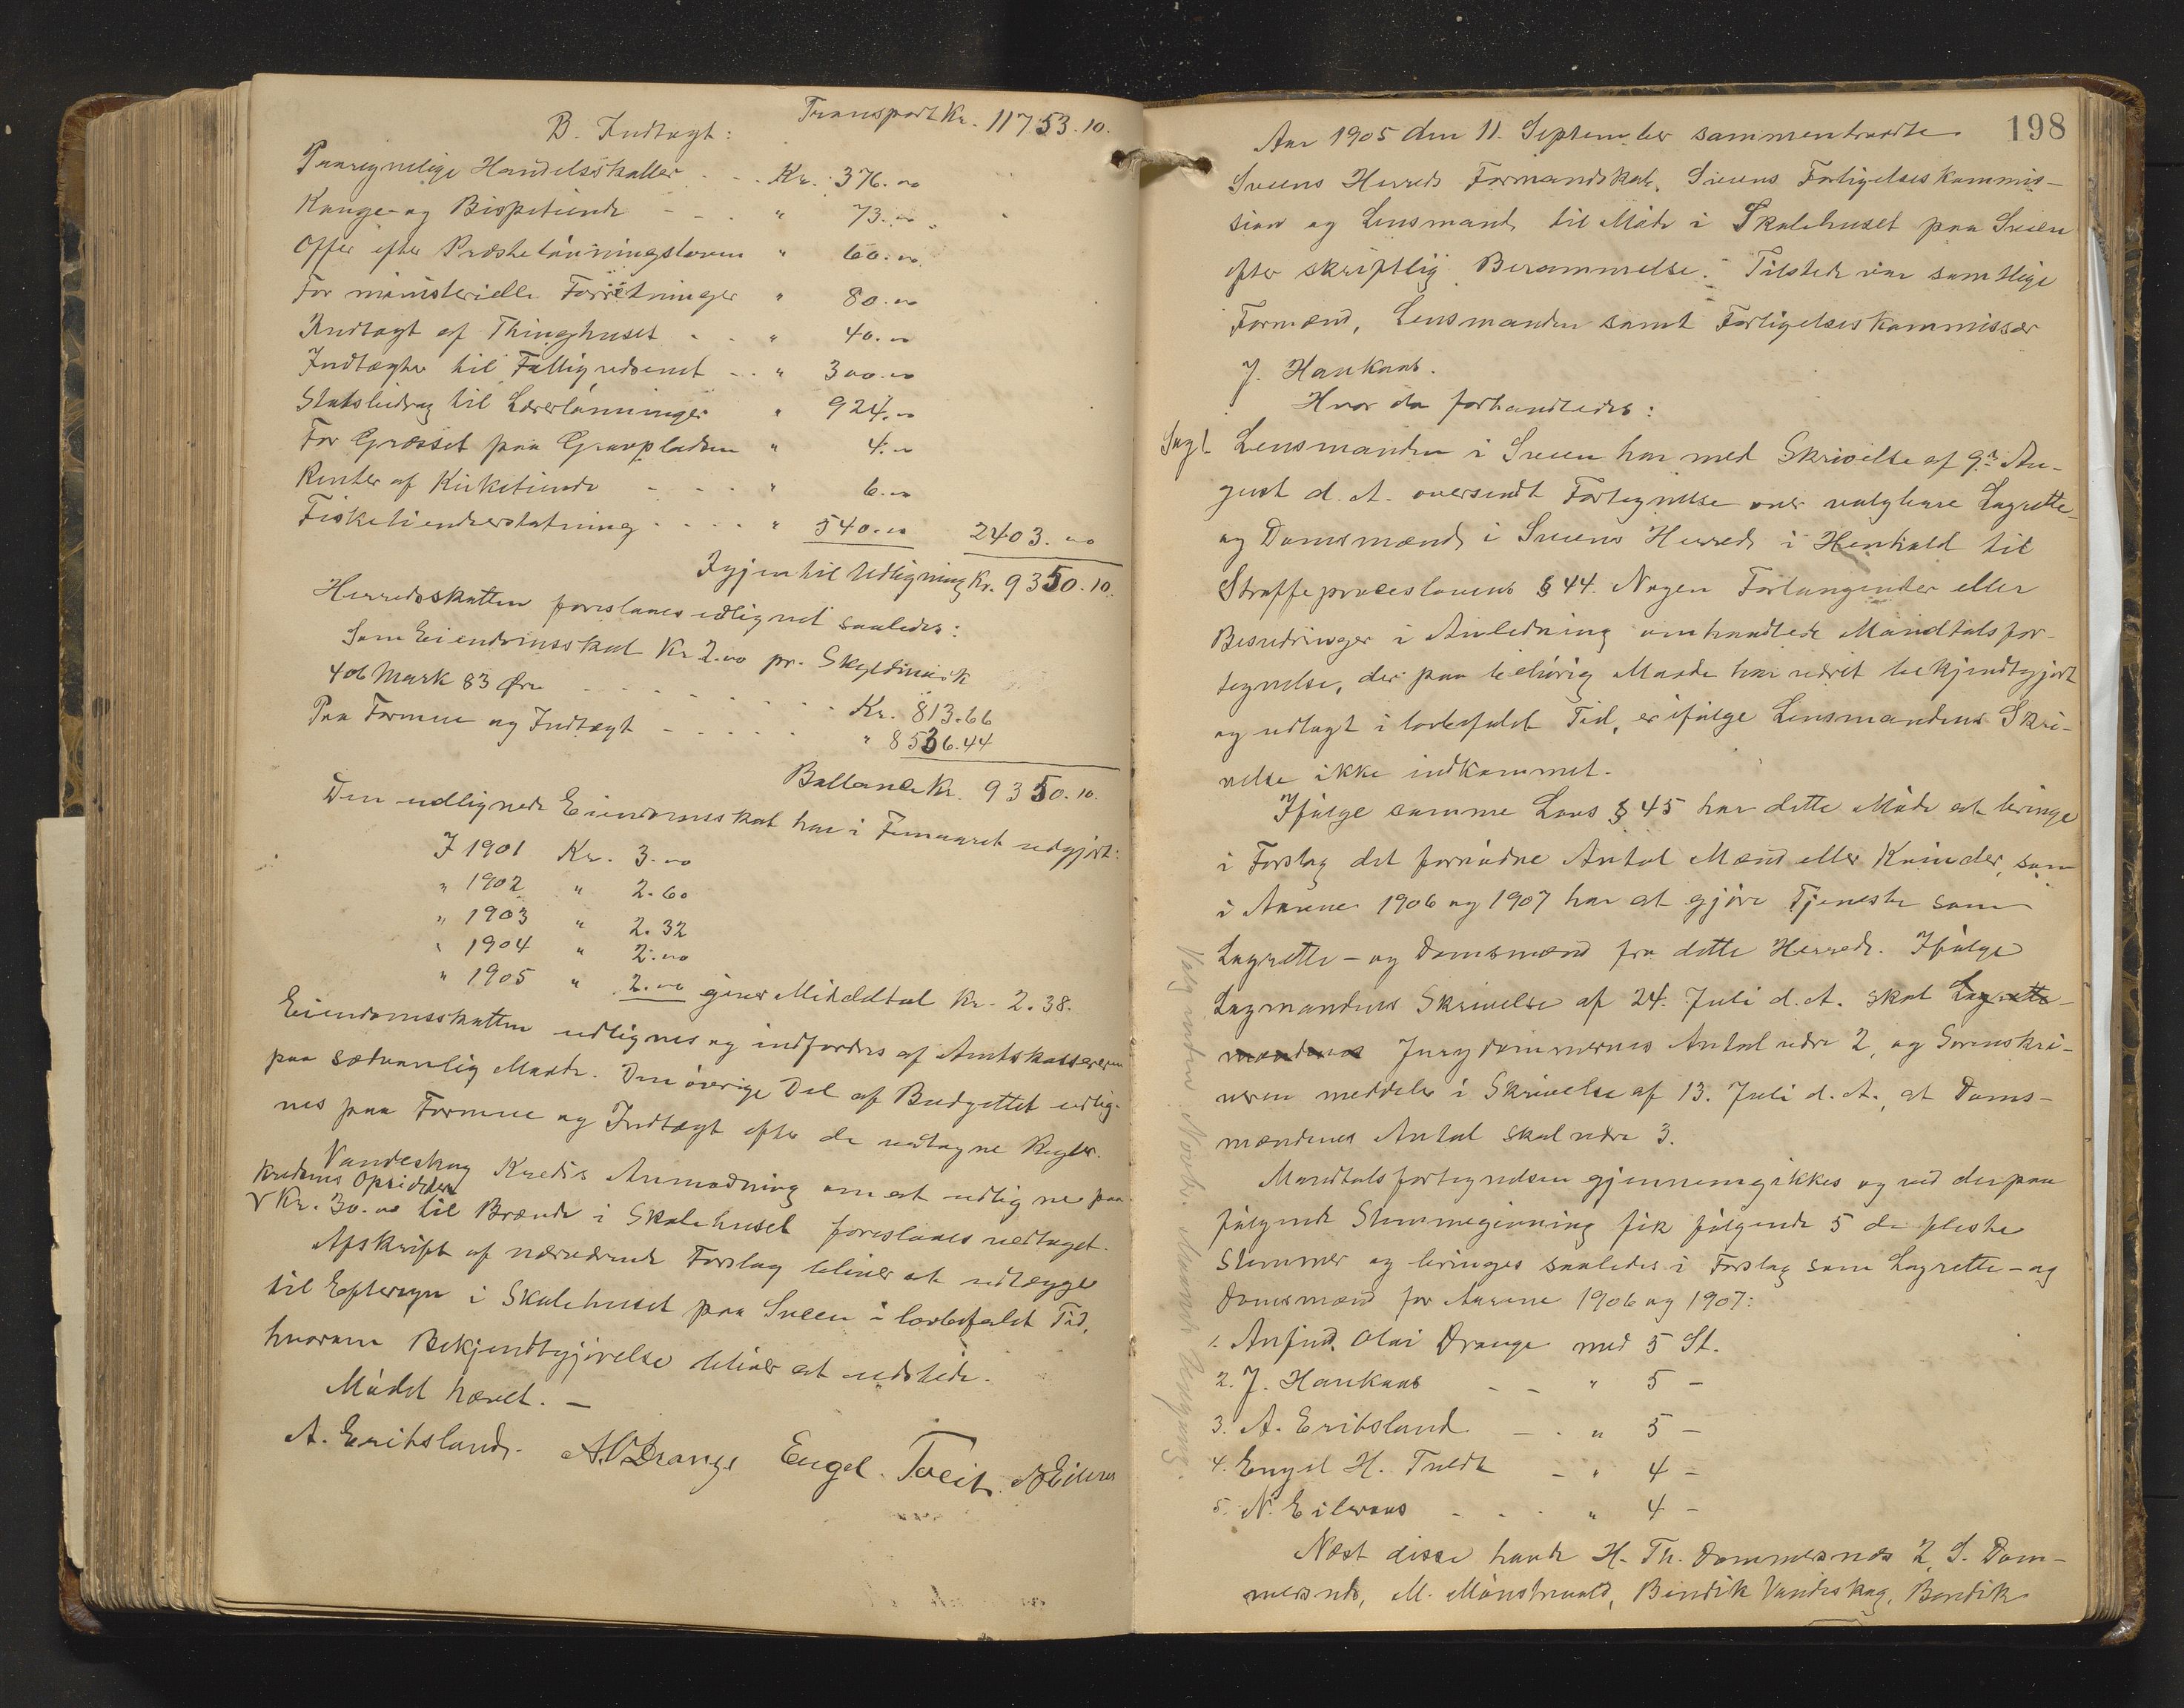 Transport Kr. 11753.10.
B. Indtægt:
Paaregnelige Handelsskatter - - Kr. 376.00
Konge- og Bispetiende - - - " 73.00
Offer efter Præstelønningsloven " 60.00
For ministerielle Forretninger " 80.00
Indtægt af Thinghuset - - " 40.00
Indtægter til Fattigvæsenet - - " 300.00
Statsbidrag til Lærerlønninger " 924.00
For Græsset paa Gravpladsen " 4.00
Renter af Kirketiende - - - " 6.00
Fisketiendeerstatning - - - - " 540.00 2403.00
Igjen til Udligning Kr. 9350.10.
Herredsskatten foreslaaes udlignet saaledes:
Som Eiendomsskat Kr 2.00 pr. Skyldmark
406 Mark 83 Øre - - - - - - - Kr. 813.66
Paa Formue og Indtægt - - - - - " 8536.44
Ballance Kr. 9350.10.
Den udlignede Eiendomsskat har i Femaaret udgjort:
I 1901 Kr. 3.00
" 1902 " 2.60
" 1903 " 2.32
" 1904 " 2.00
" 1905 " 2.00 giver Middeltal Kr. 2.38.
Eiendomsskatten udlignes og indfordres af Amtskassereren
paa sædvanlig Maade. Den øvrige Del af Budgettet udlig-
nes paa Formue og Indtægt efter de vedtagne Regler.
Vandeskog Kredis Anmodning om at udligne paa
Kredsens Opsiddere
Kr. 30.00 til Brænde i Skolehuset foreslaaes vedtaget.
Afskrift af nærværende Forslag bliver at udlægge
til Eftersyn i Skolehuset paa Sveen i lovbefalet Tid,
hvorom Bekjendtgjørelse bliver at udstede.
Mødet hævet. -
A. Eritsland. A.O Drange Engel. Tveit. N Eilevas
198
Aar 1905 den 11. September sammentraadte
Sveens Herreds Formandskab, Sveens Forligelseskommis-
sion og Lensmand til Møde i Skolehuset paa Sveen
efter skriftlig Berammelse. Tilstede var samtlige
Formænd, Lensmanden samt Forligelseskommissær
J. Haukaas.
Hvor da forhandledes:
Sag 1. Lensmanden i Sveen har med Skrivelse af 9de Au-
gust d. A. oversendt Fortegnelse over valgbare Lagrette-
og Domsmænd i Sveens Herred i Henhold til
Straffeproceslovens § 44. Nogen Forlangender eller
Besværinger i Anledning omhandlede Mandtalsfor-
tegnelse, der paa behørig Maade har været bekjendtgjort
og udlagt i lovbefalet Tid, er ifølge Lensmandens Skri-
velse ikke indkommet.
Ifølge samme Lovs § 45 har dette Møde at bringe
i Forslag det fornødne Antal Mænd eller Kvinder, som
i Aarene 1906 og 1907 har at gjøre Tjeneste som
Lagrette- og Domsmænd fra dette Herred. Ifølge
Lagmandens Skrivelse af 24. Juli d. A. skal Lagrette-
mændenes Jurydommernes Antal være 2, og Sorenskri-
veren meddeler i Skrivelse af 13. Juli d. A., at Doms-
mændenes Antal skal være 3.
Mandtalsfortegnelsen gjennemgikkes og ved derpaa
følgende Stemmegivning fik følgende 5 de fleste
Stemmer og bringes saaledes i Forslag som Lagrette- og
Domsmænd for Aarene 1906 og 1907:
1. Anfind Olai Drange med 5 St.
2. J. Haukaas - - " 5 -
3. A. Eritsland - - " 5 -
4. Engel H. Tvedt - " 4 -
5. N. Eilevas - - - " 4 -
Næst disse havde H. Th. Dommersnes 2 S. Dom-
mersnes, M. Mønstrevold, Bendik Vandeskog, Bendik